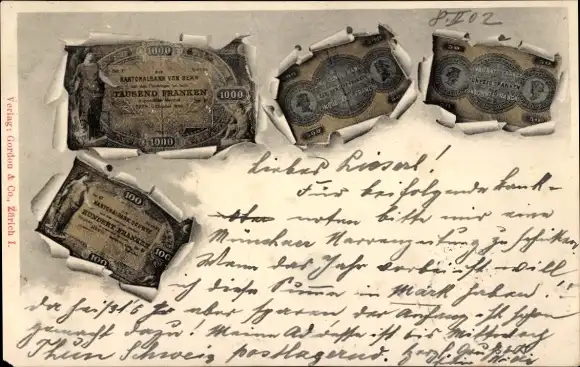 8.II 02
1000
KANTONALBANK VON BERN
TAUSEND FRANKEN
1000
1000
500
50
50
100
HUNDERT FRANKEN
100
100
Verlag: Gordon & Co., Zürich I.
Liebes Lieserl!
Für beifolgende Bank-
noten bitte mir eine
Münchner Narrenzeitung zu schicken.
Wenn das Jahr vorbei ist will
ich diese Summe in Mark haben!
da heißts aber sparen der Anfang ist schon
gemacht dazu! Meine Adresse ist bis Mittwoch
Thun Schweiz postlagernd. Herzl. Gruß